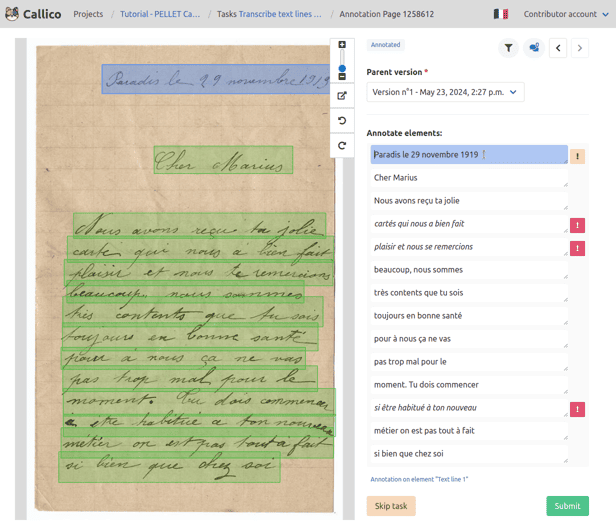 Callico
Projects / Tutorial - PELLET Ca... / Tasks Transcribe text lines ... / Annotation Page 1258612
Contributor account
Paradis le 29 novembre 1919
Cher Marius
Nous avons reçu ta jolie
carte qui nous à bien fait
plaisir et nous te remercions
beaucoup. nous sommes
très contents que tu sois
toujours en bonne santé
pour à nous ça ne vas
pas trop mal pour le
moment. Tu dois commencer
à etre habitué a ton nouveau
métier on est pas tout a fait
si bien que chez soi
Annotated
Parent version *
Version n°1 - May 23, 2024, 2:27 p.m.
Annotate elements:
Paradis le 29 novembre 1919
Cher Marius
Nous avons reçu ta jolie
cartés qui nous a bien fait
plaisie et nous se remercions
beaucoup, nous sommes
très contents que tu sois
toujours en bonne santé
pour à nous ça ne vas
pas trop mal pour le
moment. Tu dois commencer
si être habitué à ton nouveau
métier on est pas tout à fait
si bien que chez soi
Annotation on element "Text line 1"
Skip task
Submit